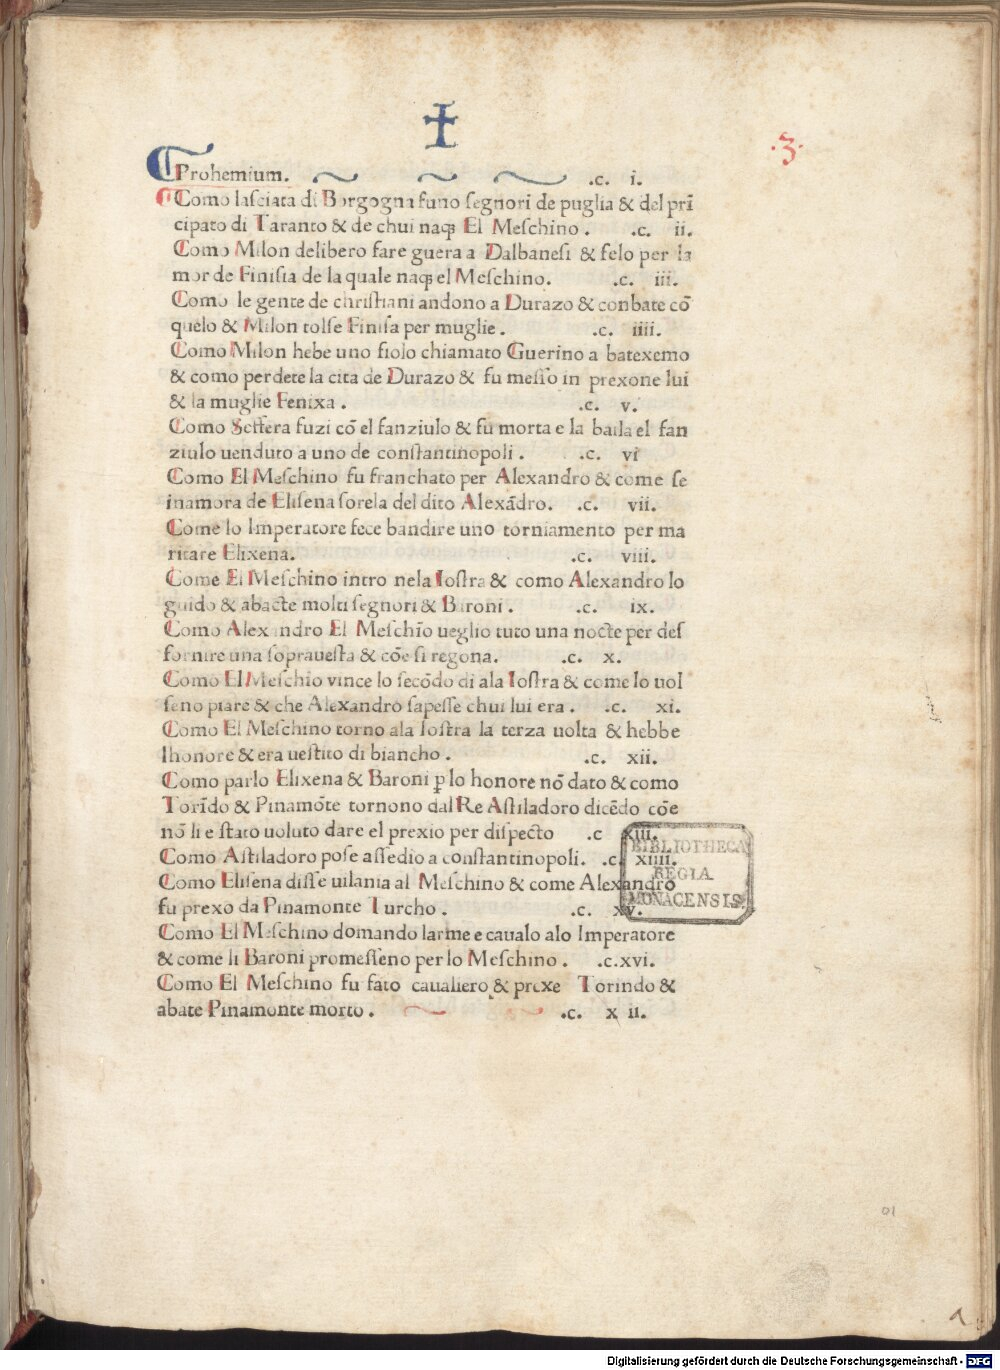 .3.
Prohemium. .c. i.
Como lasciata di Borgogna funo segnori de puglia & del pri̅
cipato di Taranto & de chui naqꝫ El Meschino . .c. ii.
Como Milon delibero fare guera a Dalbanesi & felo per la
mor de Finisia de la quale naqꝫ el Meschino. .c. iii.
Como le gente de christiani andono a Durazo & conbate co̅
quelo & Milon tolse Finisa per muglie . .c. iiii.
Como Milon hebe uno fiolo chiamato Guerino a batexemo
& como perdete la cita de Durazo & fu messo in prexone lui
& la muglie Fenixa . .c. v.
Como Seffera fuzi co̅ el fanziulo & fu morta e la baila el fan
ziulo uenduto a uno de constantinopoli . .c. vi
Como El Meschino fu franchato per Alexandro & come se
inamora de Elisena sorela del dito Alexa̅dro. .c. vii.
Come lo Imperatore fece bandire uno torniamento per ma
ritare Elixena. .c. viii.
Come El Meschino intro nela Iostra & como Alexandro lo
guido & abacte molti segnori & Baroni . .c. ix.
Como Alexandro El Meschi̅o ueglio tuto una nocte per des
fornire una soprauesta & co̅e si regona. .c. x.
Como El Meschio vince lo seco̅do di ala Iostra & come lo uol
seno piare & che Alexandro sapesse chui lui era . .c. xi.
Como El Meschino torno ala Iostra la terza uolta & hebbe
lhonore & era uestito di biancho . .c. xii.
Como parlo Elixena & Baroni ꝑ lo honore no̅ dato & como
Tori̅do & Pinamo̅te tornono dal Re Astiladoro dice̅do co̅e
no̅ li e stato uoluto dare el prexio per dispecto .c xiii.
Como Astiladoro pose assedio a constantinopoli. .c. xiiii.
Como Elisena disse uilania al Meschino & come Alexandro
fu prexo da Pinamonte Turcho . .c. xv.
Como El Meschino domando larme e caualo alo Imperatore
& come li Baroni promesseno per lo Meschino . .c.xvi.
Como El Meschino fu fato caualiero & prexe Torindo &
abate Pinamonte morto . .c. x ii.
BIBLIOTHECA
REGIA
MONACENSIS.
01
Digitalisierung gefördert durch die Deutsche Forschungsgemeinschaft - DFG